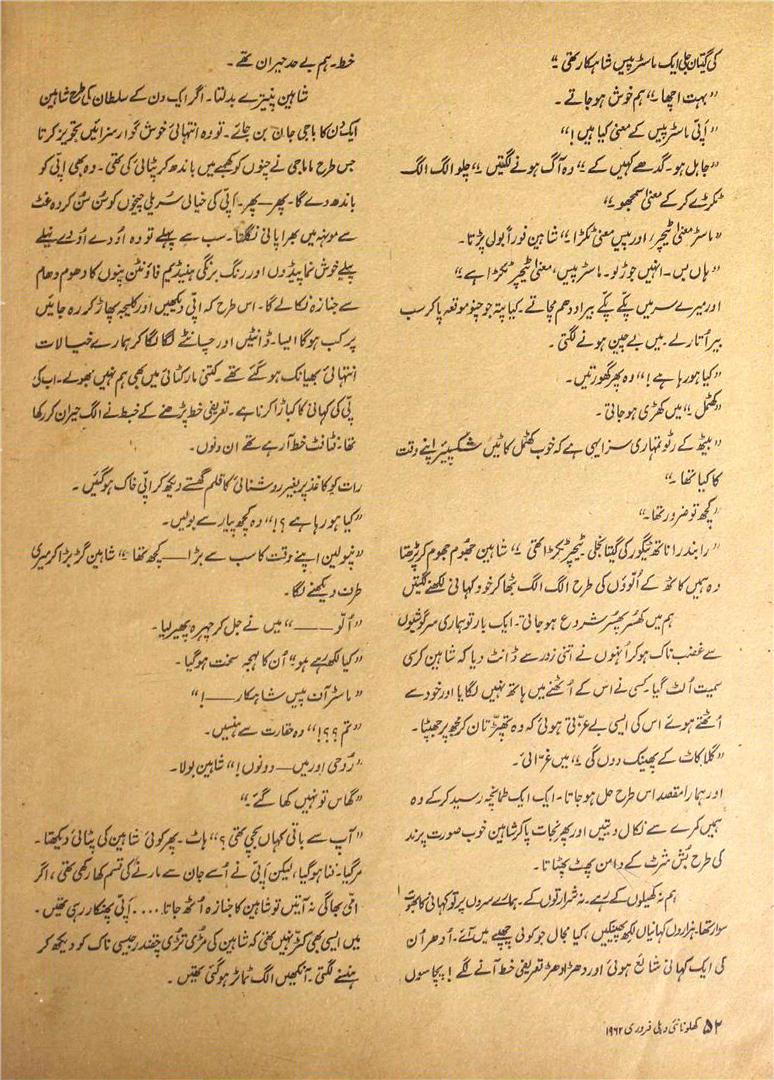 کی گیتان جلی ایک ماسٹر پیس شاہکار تھی۔"
"بہت اچھا۔" ہم خوش ہو جاتے۔
"اَپی ماسٹر پیس کے معنی کیا ہیں!"
"جاہل ہو۔ گدھے کہیں کے" وہ آگ ہونے لگتیں۔ "چلو الگ الگ
ٹکڑے کر کے معنی سمجھو۔"
"ماسٹر معنی ٹیچر، اور پیس معنی ٹکڑا۔" شاہین فوراً بول پڑتا۔
"ہاں بس۔ انہیں جوڑ لو۔ ماسٹر پیس، معنی ٹیچر ٹکڑا ہے"
اور میرے سر میں پکّے پکّے بیر اودھم مچاتے۔ کیا پتہ جو چنو موقعہ پا کر سب
بیر اُتار لے۔ میں بے چین ہونے لگتی۔
"کیا ہو رہا ہے!" وہ پھر گھورتیں۔
"کھٹمل۔" میں کھڑی ہو جاتی۔
"بیٹھ کے رٹو تمہاری سزا یہی ہے کہ خوب کھٹمل کاٹیں شکسپیئر اپنے وقت
کا کیا تھا۔"
"کچھ تو ضرور تھا۔"
"رابندر ناتھ ٹیگور کی گیتانجلی ٹیچر ٹکڑا تھی۔" شاہین جھوم جھوم کر پڑھتا
وہ ہمیں کاٹھ کے اُلوؤں کی طرح الگ الگ بٹھا کر خود کہانی لکھنے لگتیں
ہم میں کھُسر پھُسر شروع ہو جاتی۔ ایک بار تو ہماری سرگوشیوں
سے غضب ناک ہو کر اُنہوں نے اتنی زور سے ڈانٹ دیا کہ شاہین کرسی
سمیت اُلٹ گیا۔ کسی نے اس کے اُٹھنے میں ہاتھ نہیں لگایا اور خود سے
اُٹھتے ہوئے اس کی ایسی بے عزتی ہوئی کہ وہ تھپڑ تان کر مجھ پر جھپٹا۔
"گلا کاٹ کے پھینک دوں گی۔" میں غرّائی۔
اور ہمارا مقصد اس طرح حل ہو جاتا۔ ایک ایک طمانچہ رسید کر کے وہ
ہمیں کمرے سے نکال دیتیں اور پھر نجات پا کر شاہین خوب صورت پرند
کی طرح بُش شرٹ کے دامن پھٹ پھٹاتا۔
ہم نہ کھیلوں کے رہے۔ نہ شرارتوں کے۔ ہمارے سروں پر تو کہانی کا بھوت
سوار تھا۔ ہزاروں کہانیاں لکھ پھینکیں، کیا مجال جو کوئی چھپنے میں آئے۔ اُدھر اُن
کی ایک کہانی شائع ہوئی اور دھڑادھڑ تعریفی خط آنے لگے! پچاسوں
خط۔ ہم بے حد حیران تھے۔
شاہین پنیترے بدلتا۔ اگر ایک دن کے سلطان کی طرح شاہین
ایک دن کا باجی جان بن جائے۔ تو وہ انتہائی خوش گوار سزائیں تجویز کرتا
جس طرح ماماجی نے چنوں کو کھمبے میں باندھ کر پٹائی کی تھی۔ وہ بھی اپی کو
باندھ دے گا۔ پھر — پھر۔ اَپی کی خیالی سریلی چیخوں کو سُن سُن کر وہ غٹ
سے مونہہ میں بھرا پانی نگلتا۔ سب سے پہلے تو وہ اُودے اُودے نیلے
پیلے خوش نما پیڈوں اور رنگ برنگی ہینڈیم فاؤنٹن پنوں کا دھوم دھام
سے جنازہ نکالے گا۔ اس طرح کہ اپی دیکھیں اور کلیجہ پھاڑ کر رہ جائیں
پر کب ہوگا ایسا۔ ڈانٹیں اور چانٹے لگا لگا کر ہمارے خیالات
انتہائی بھیانک ہو گئے تھے۔ کتنی مار کٹائی میں بھی ہم نہیں بھولے۔ اب کی
پی کی کہانی کا کباڑا کرنا ہے۔ تعریفی خط پڑھنے کے خبط نے الگ حیران کر رکھا
تھا۔ ٹناٹٹ خط آ رہے تھے ان دنوں۔
رات کو کاغذ پر بغیر روشنائی کا قلم گھستے دیکھ کر اپی خاک ہو گئیں۔
"کیا ہو رہا ہے؟!" وہ کچھ پیار سے بولیں۔
"نپولین اپنے وقت کا سب سے بڑا — کچھ تھا۔" شاہین گڑبڑا کر میری
طرف دیکھنے لگا۔
"اُلّو ——" میں نے جل کر چہرہ پھیر لیا۔
"کیا لکھ رہے ہو" اُن کا لہجہ سخت ہو گیا۔
"ماسٹر آن پیس شاہکار —!"
"تم؟؟!" وہ حقارت سے ہنسیں۔
"رُوحی اور میں — دونوں!" شاہین بولا۔
"گھاس تو نہیں کھا گئے۔"
"آپ سے باقی کہاں بچی تھی؟" ہاٹ۔ پھر کوئی شاہین کی پٹائی دیکھتا۔
مر گیا۔ فنا ہو گیا، لیکن اَپی نے اُسے جان سے مارنے کی قسم کھا رکھی تھی، اگر
امّی بھاگی نہ آتیں تو شاہین کا جنازہ اُٹھ جاتا.... اَپی پھنکار رہی تھیں۔
میں ایسی بھی کٹر نہیں تھی کہ شاہین کی مڑی تڑی چقندر جیسی ناک کو دیکھ کر
ہنسنے لگتی۔ آنکھیں الگ ٹماٹر ہو گئی تھیں۔
۵۲ کھلونا نئی دہلی فروری ۱۹۶۲